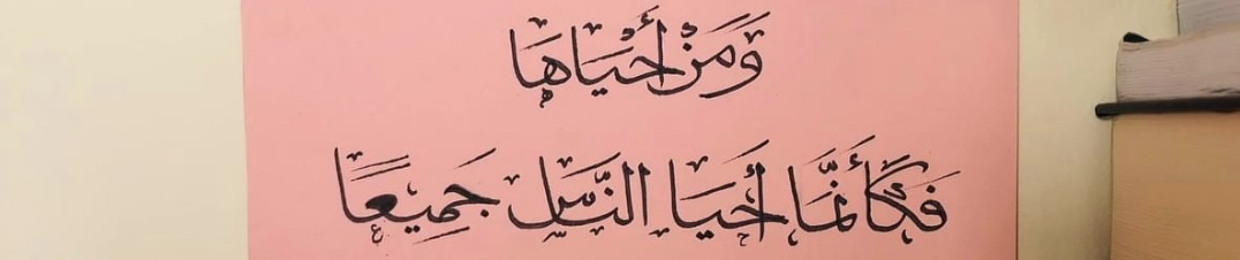 وَمَنْ أَحْيَاهَا
فَكَأَنَّمَا أَحْيَا النَّاسَ جَمِيعًا